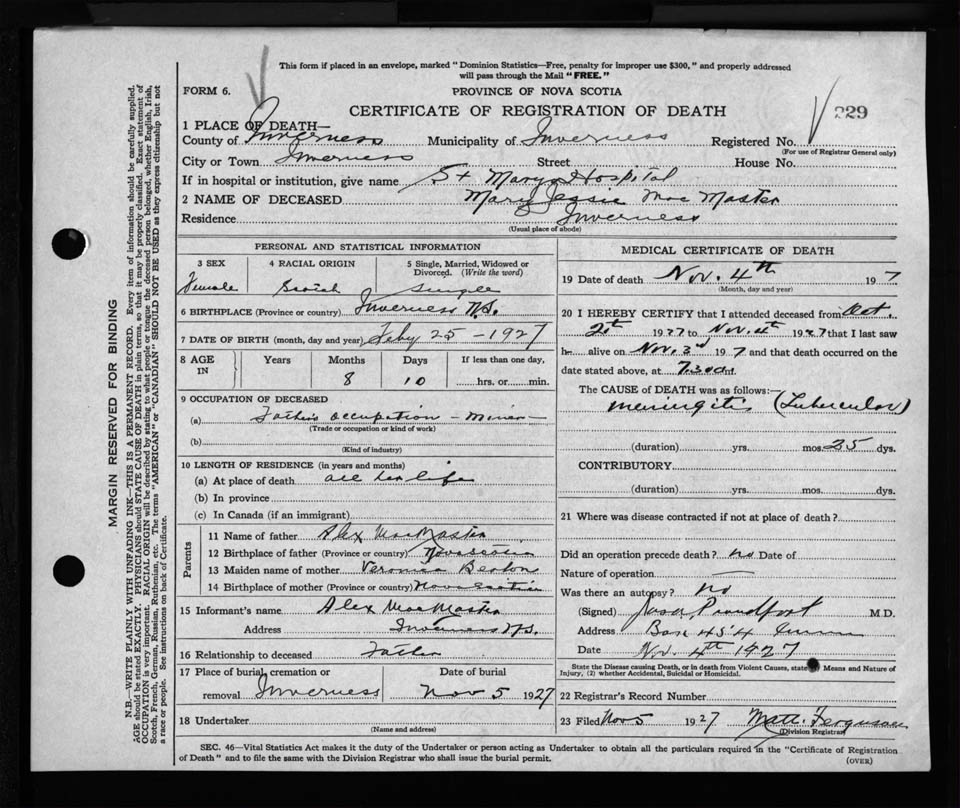 This form if placed in an envelope, marked "Dominion Statistics—Free, penalty for improper use $300," and properly addressed
will pass through the Mail "FREE."
FORM 6.
PROVINCE OF NOVA SCOTIA
CERTIFICATE OF REGISTRATION OF DEATH
229
1 PLACE OF DEATH—
County of Inverness Municipality of Inverness Registered No.
(For use of Registrar General only)
City or Town Inverness Street House No.
If in hospital or institution, give name St Marys Hospital
2 NAME OF DECEASED Mary Jessie Mac Master
Residence Inverness
(Usual place of abode)
PERSONAL AND STATISTICAL INFORMATION
3 SEX 4 RACIAL ORIGIN 5 Single, Married, Widowed or Divorced. (Write the word)
Female Scotch Single
6 BIRTHPLACE (Province or country) Inverness N.S.
7 DATE OF BIRTH (month, day and year) Feby 25 - 1927
8 AGE IN Years Months Days If less than one day,
8 10 hrs. or min.
9 OCCUPATION OF DECEASED
(a) Father's Occupation - Miner -
(Trade or occupation or kind of work)
(b)
(Kind of industry)
10 LENGTH OF RESIDENCE (in years and months)
(a) At place of death all her life
(b) In province
(c) In Canada (if an immigrant)
Parents
11 Name of father Alex MacMaster
12 Birthplace of father (Province or country) Nova Scotia
13 Maiden name of mother Veronica Beaton
14 Birthplace of mother (Province or country) Nova Scotia
15 Informant's name Alex MacMaster
Address Inverness N.S.
16 Relationship to deceased Father
17 Place of burial, cremation or removal Inverness Date of burial Nov 5 1927
18 Undertaker
(Name and address)
MEDICAL CERTIFICATE OF DEATH
19 Date of death Nov. 4th 1927
(Month, day and year)
20 I HEREBY CERTIFY that I attended deceased from Oct.
20th 1927 to Nov. 4th 1927 that I last saw
h alive on Nov. 3rd 1927 and that death occurred on the
date stated above, at 7.30 a.m.
The CAUSE OF DEATH was as follows:
Meningitis (Tubercular)
(duration) yrs. mos. 25 dys.
CONTRIBUTORY
(duration) yrs. mos. dys.
21 Where was disease contracted if not at place of death?
Did an operation precede death? no Date of
Nature of operation
Was there an autopsy? no
(Signed) M.D.
Address Box 454
Date Nov. 4th 1927
State the Disease causing Death, or in death from Violent Causes, state Means and Nature of
Injury, (2) whether Accidental, Suicidal or Homicidal.
22 Registrar's Record Number
23 Filed Nov 5 1927 Matt. Ferguson
(Division Registrar)
SEC. 46—Vital Statistics Act makes it the duty of the Undertaker or person acting as Undertaker to obtain all the particulars required in the "Certificate of Registration
of Death" and to file the same with the Division Registrar who shall issue the burial permit.
(OVER)
MARGIN RESERVED FOR BINDING
N.B.—WRITE PLAINLY WITH UNFADING INK—THIS IS A PERMANENT RECORD. Every item of information should be carefully supplied.
AGE should be stated EXACTLY. PHYSICIANS should STATE CAUSE OF DEATH in plain terms, so that it may be properly classified. Exact statement of
OCCUPATION is very important. RACIAL ORIGIN will be described by stating to what people or tongue the deceased person belonged, whether English, Irish,
Scotch, French, German, Russian, Ruthenian, etc. The terms "AMERICAN" or "CANADIAN" SHOULD NOT BE USED as they express citizenship but not
a race or people. See instructions on back of Certificate.